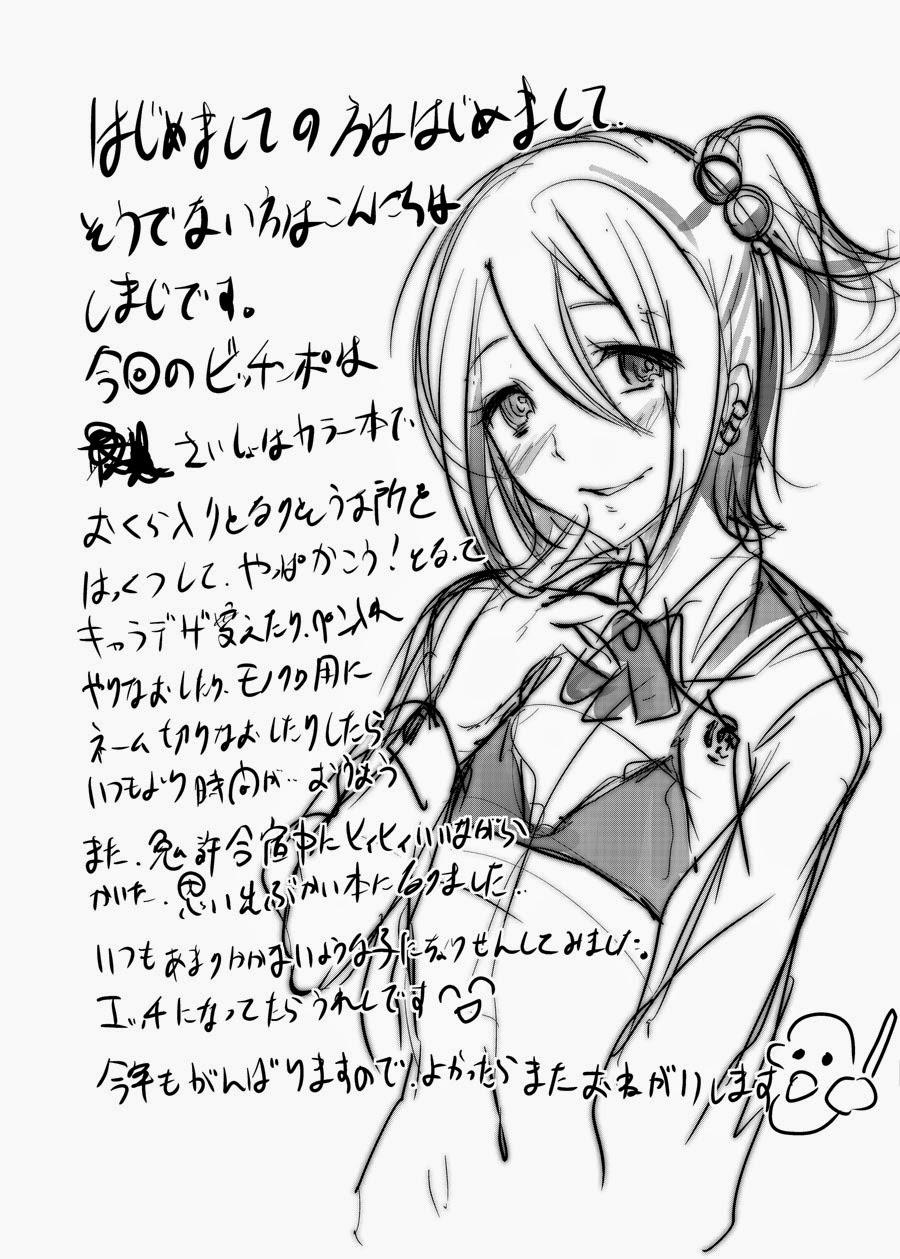 はじめましての方ははじめまして。
そうでない方はこんにちは
しまじです。
今回のビッチッポは
さいしょはカラー本で
おくら入りとなりそうな所を
はっくつして、やっぱかこう!となって
キャラデザ変えたり、ペン入れ
やりなおしたり、モノクロ用に
ネーム切りなおしたりしたら
いつもより時間が…
また、免許合宿中にヒィヒィいいながら
かいた、思い出ぶかい本になりました。
いつもあまりかかないような子にちょうせんしてみました。
エッチになってたらうれしいです
今年もがんばりますので、よかったらまたおねがいします